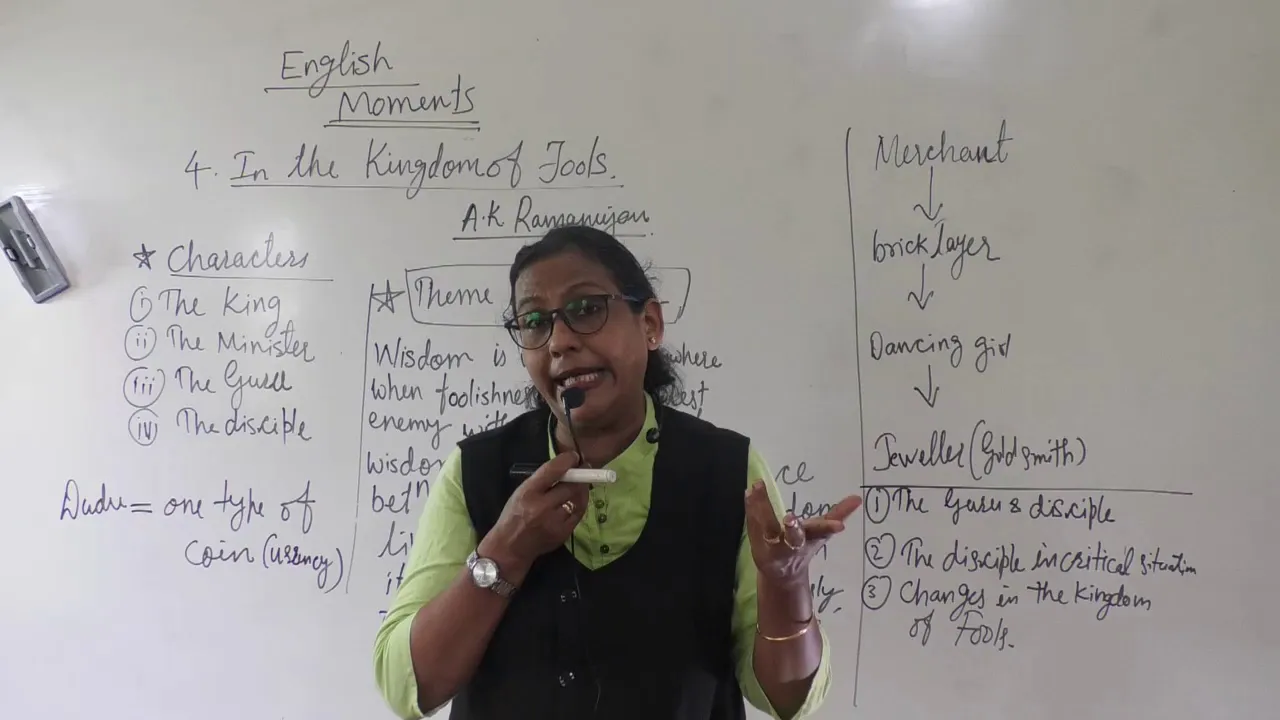 English
Moments
4. In the Kingdom of Fools.
A.K Ramanujan
★ Characters
(i) The King
(ii) The Minister
(iii) The Guru
(iv) The disciple
Dudu = one type of
coin (currency)
★ Theme
Wisdom is where
when foolishne
enemy with
wisdo ce
bet dom
li
it ly.
Merchant
↓
bricklayer
↓
Dancing girl
↓
Jeweller (Goldsmith)
① The Guru & disciple
② The disciple in critical situation
③ Changes in the Kingdom
of Fools.